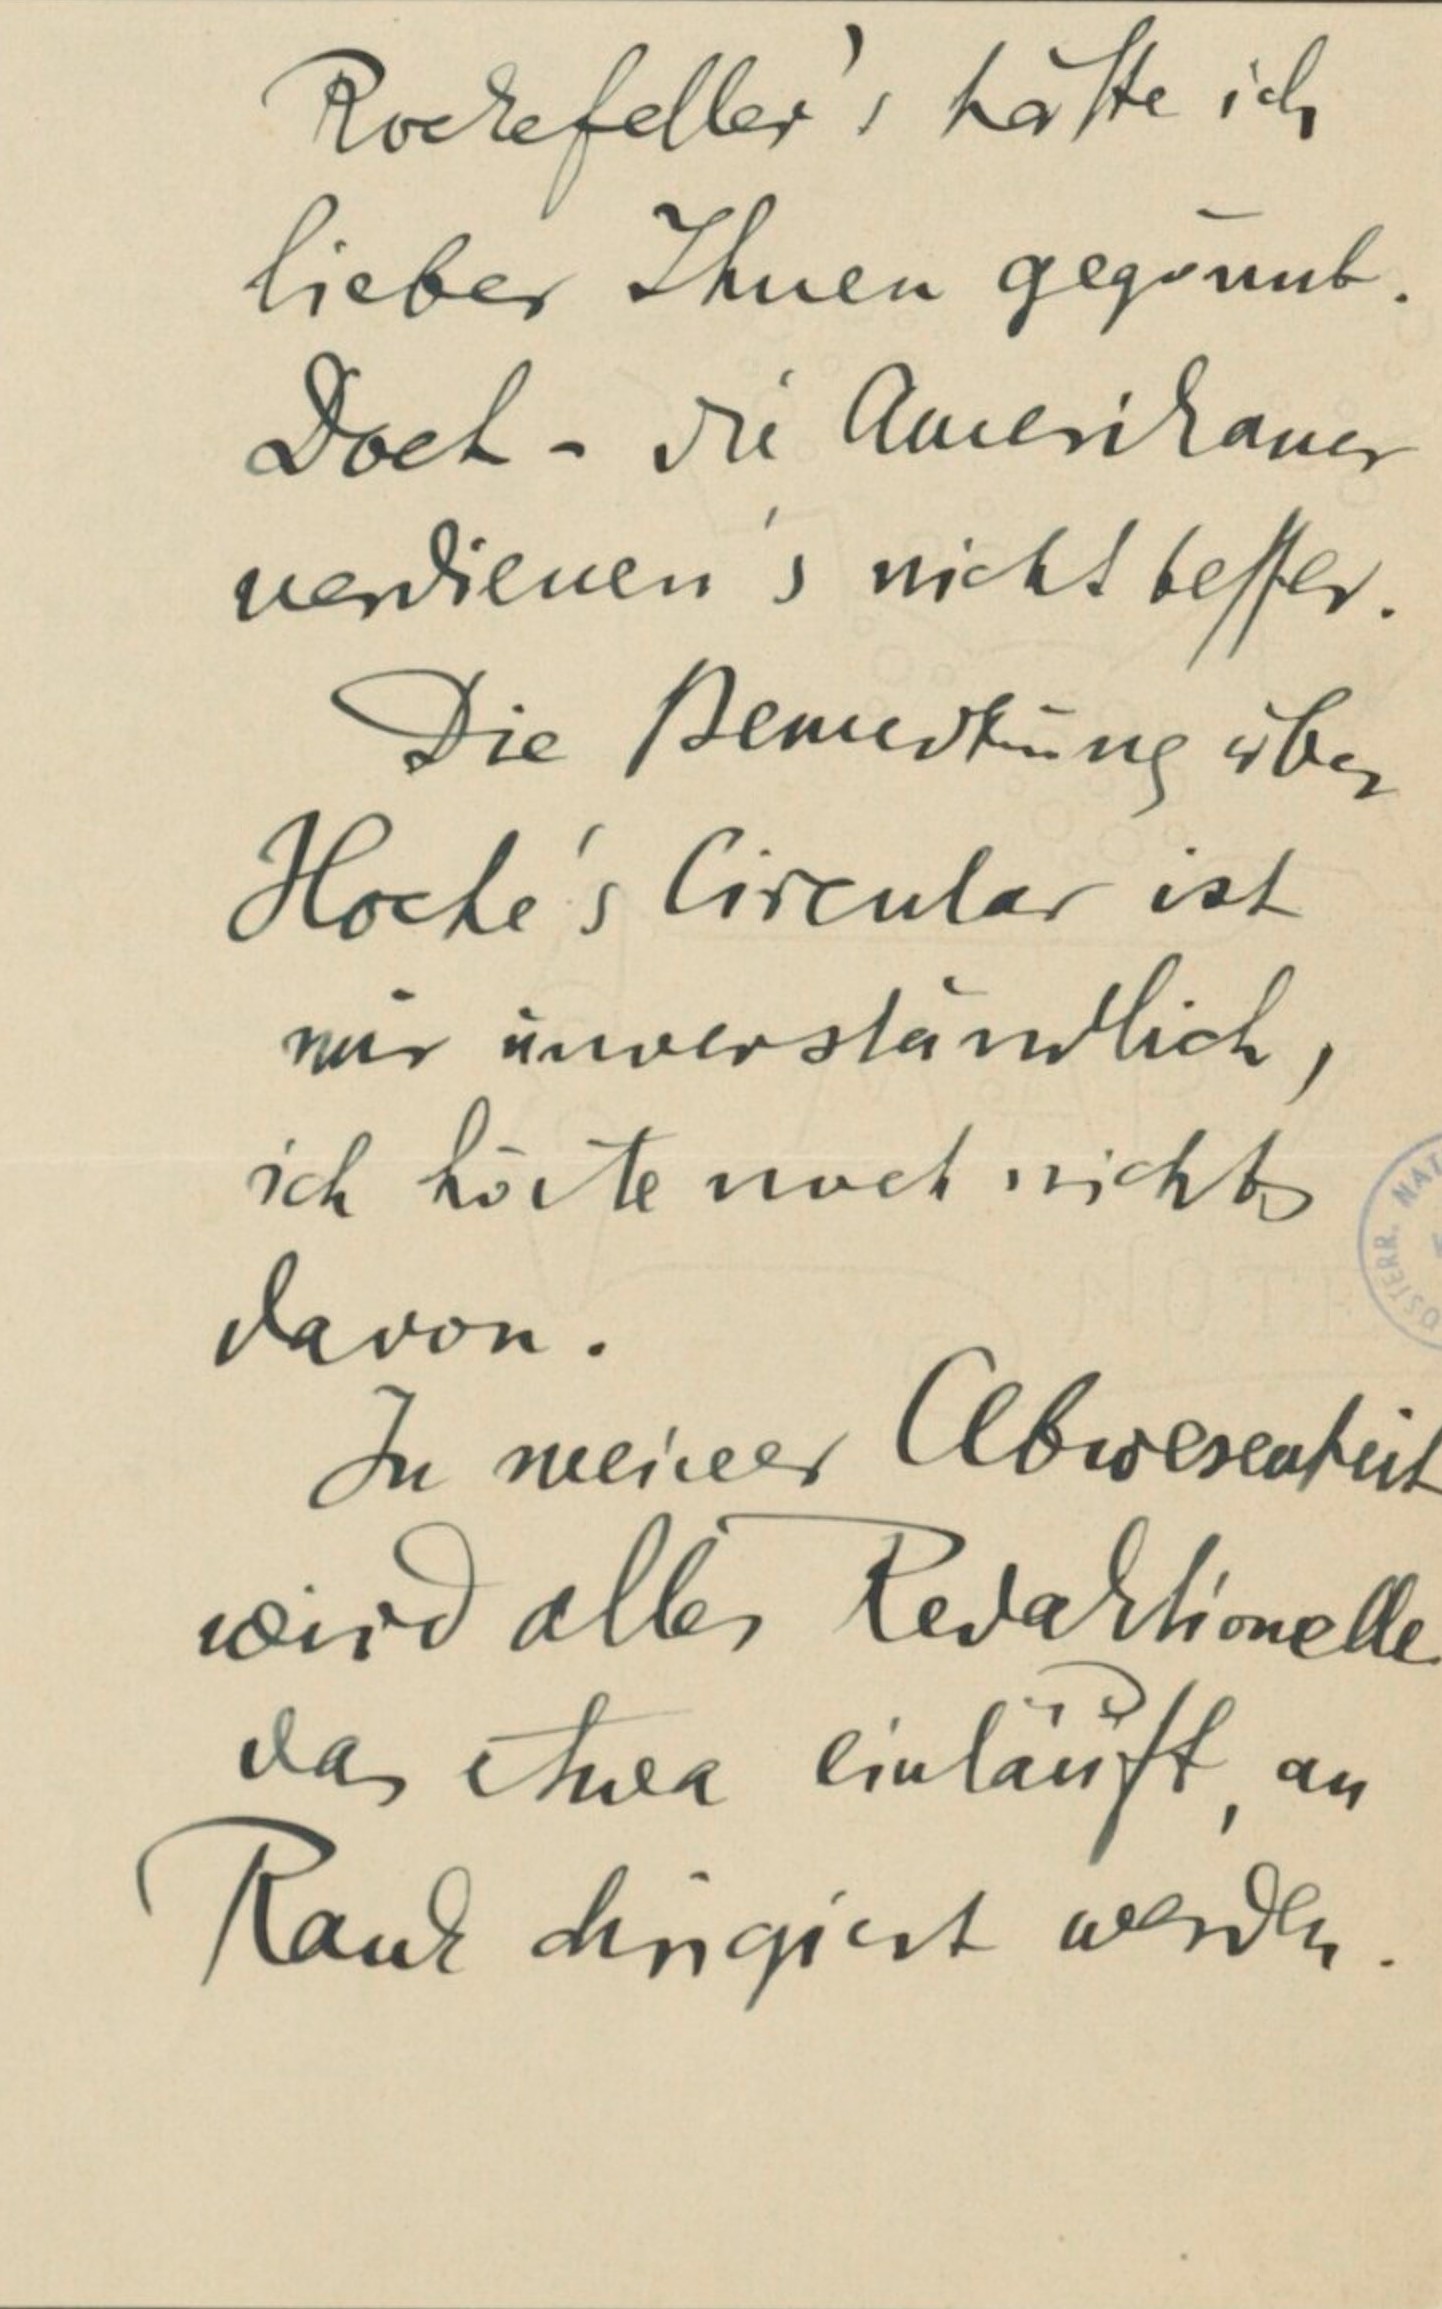 Rockefeller's hätte ich
lieber Ihnen gegönnt.
Doch - die Amerikaner
verdienen's nicht besser.
Die Bemerkung über
Hoche's Circular ist
mir unverständlich,
ich hörte noch nichts
davon.
In meiner Abwesenheit
wird alles Redaktionelle
das etwa einläuft, an
Rank dirigiert werden.
ÖSTERR. NAT